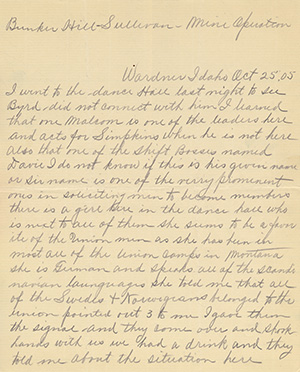 Bunker Hill-Sullivan - Mine Operation
Wardner Idaho Oct 25, 05
I went to the dance Hall last night to see
Byrd did not connect with him I learned
that one Malcom is one of the leaders here
and acts for Simpkins when he is not here
also that one of the Shift Bosses named
Davie I do not know if this is his given name
or sir name is one of the verry prominent
ones in soliciting men to become members
there is a girl here in the dance hall who
is next to all of them she seems to be a favor
ite of the Union men as she has been in
most all of the Union camps in Montana
she is German and speaks all of the Scandi
navian languages she told me that all
of the Swedes & Norwegians belonged to the
Union pointed out 3 to me I gave them
the signal and they come over and shook
hands with us we had a drink and they
told me about the situation here